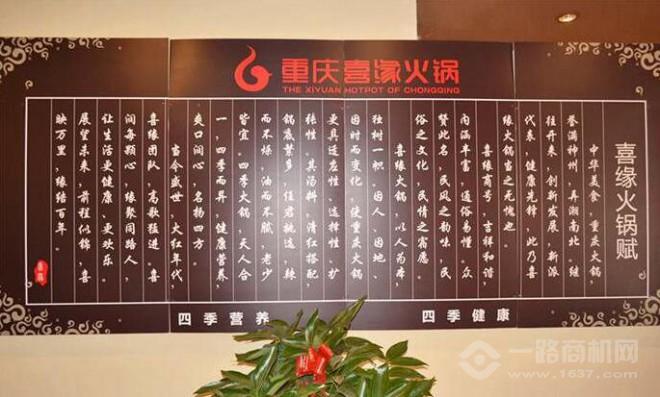 重庆喜缘火锅
THE XIYUAN HOTPOT OF CHONGQING
喜缘火锅赋
中华美食,重庆火锅,
誉满神州,弄潮南北。继
往开来,创新发展,新派
代表,健康先锋,此乃喜
缘火锅当之无愧也。
喜缘商号,吉祥和谐,
内涵丰富,通俗易懂。众
赞此名,民风之韵味,民
俗之文化,民情之寓愿。
喜缘火锅,以人为本,
独树一帜。因人、因地、
因时而变化,使重庆火锅
更具适应性、选择性、扩
张性。其汤料,清红搭配,
锅底繁多,任君挑选,辣
而不烁,油而不腻,老少
皆宜。四季火锅,天人合
一,四季而异,健康营养,
爽口润心,名扬四方。
当今盛世,大红年代,
喜缘团队,高歌猛进。喜
润每颗心,缘聚同路人,
让生活更健康、更欢乐。
展望未来,前程似锦,喜
映万里,缘结百年。
四季营养
四季健康
一路商机网
www.1637.com